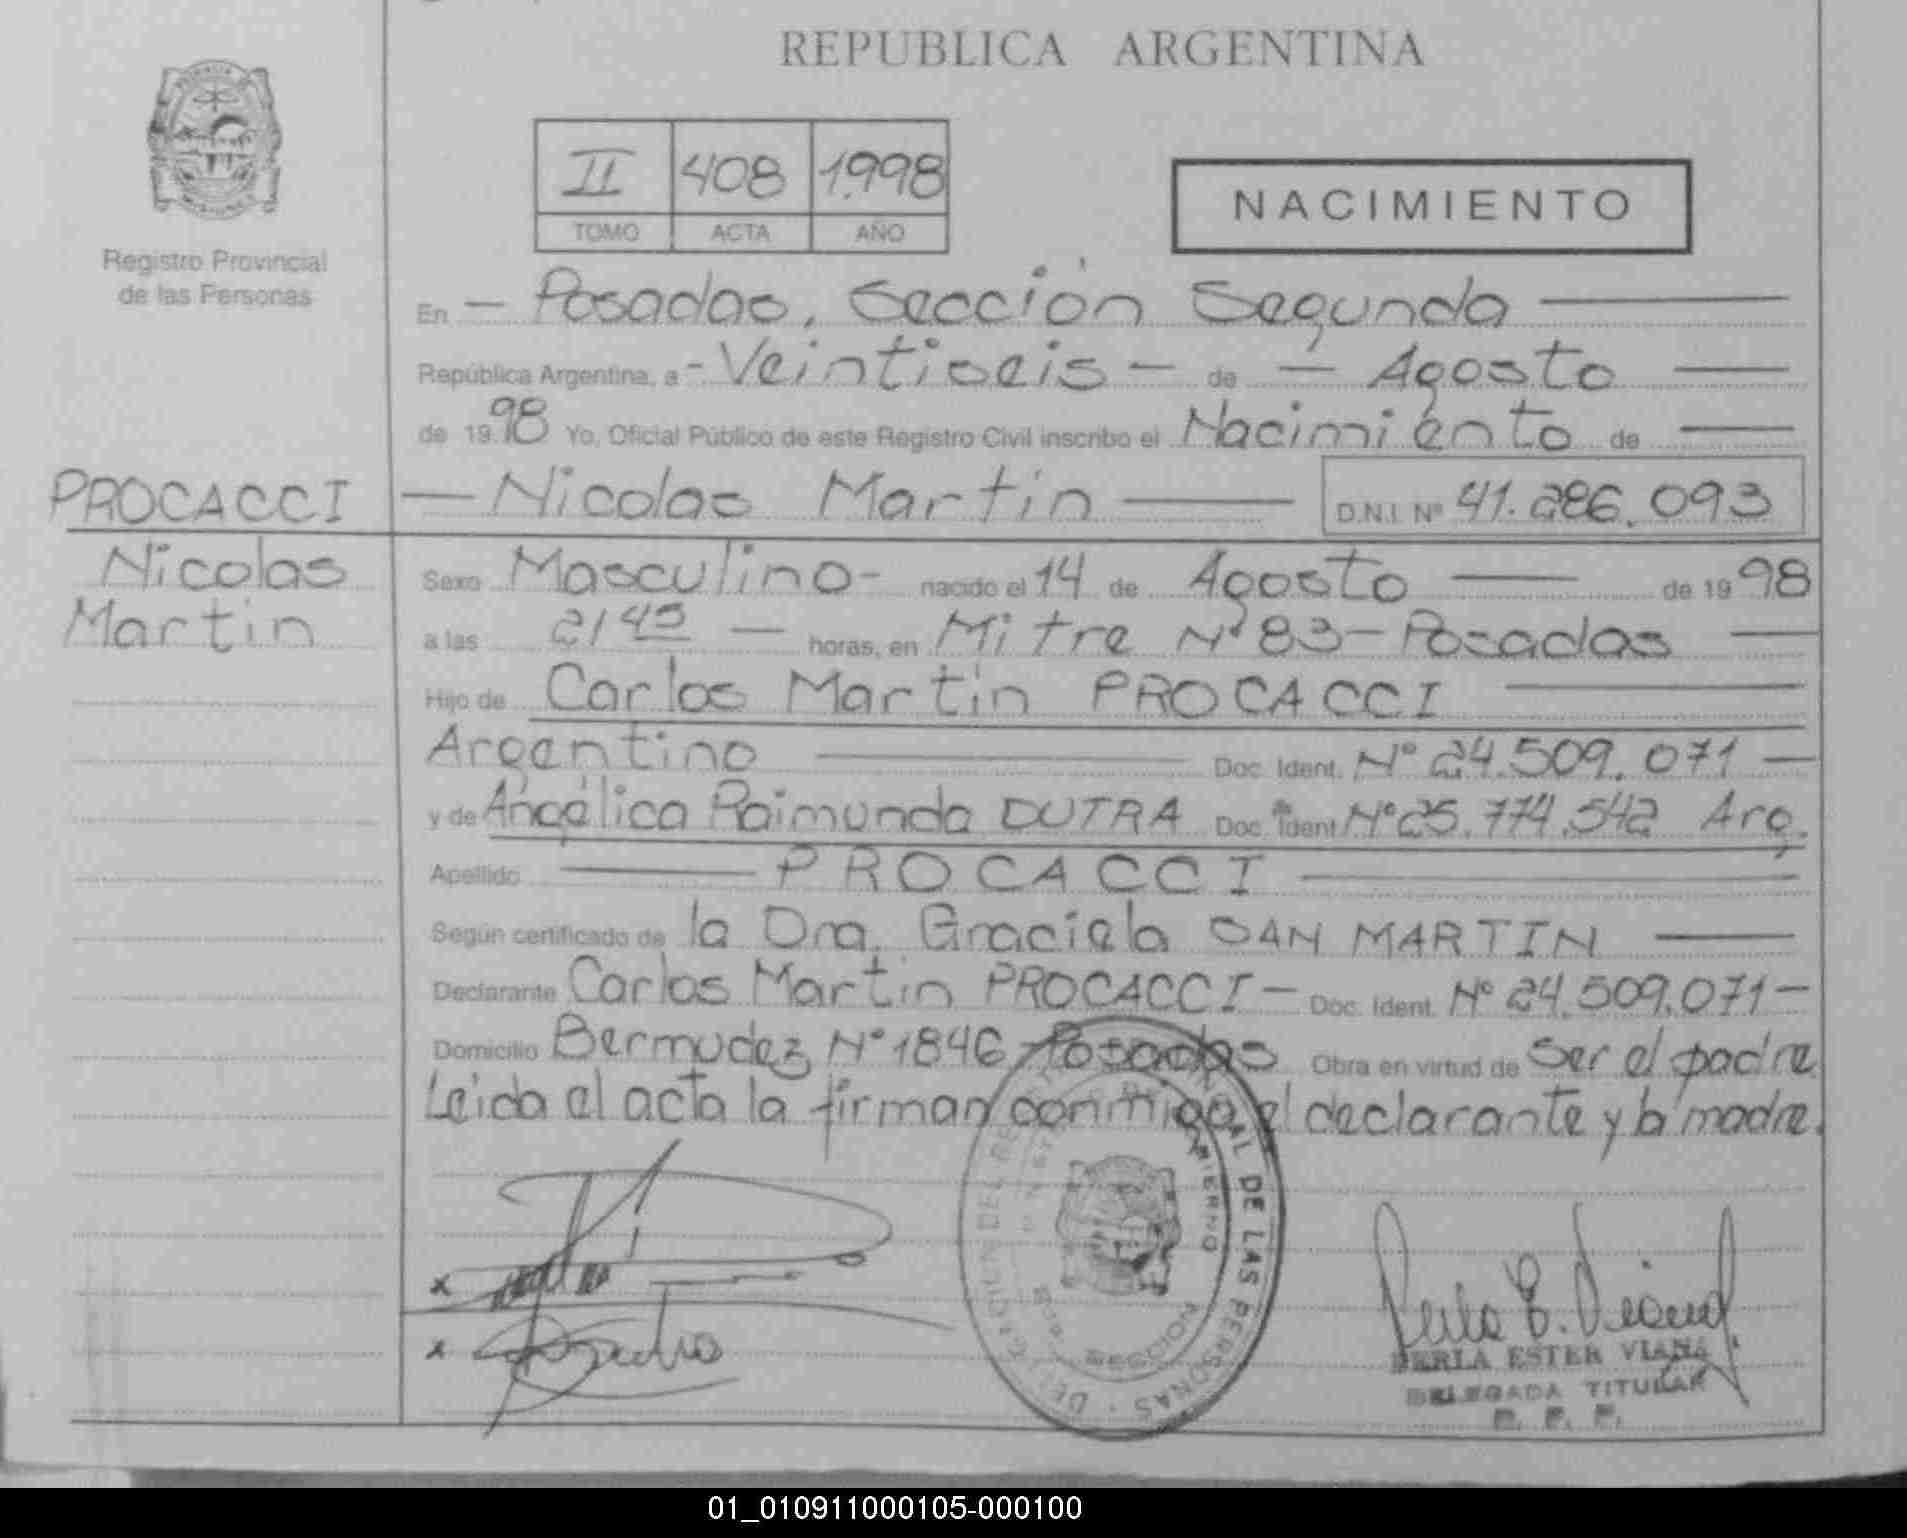 REPUBLICA ARGENTINA
II 408 1998
TOMO ACTA AÑO
NACIMIENTO
Registro Provincial
de las Personas
En — Posadas, Sección Segunda —
República Argentina, a - Veintiseis - de — Agosto —
de 1998 Yo, Oficial Público de este Registro Civil inscribo el Nacimiento de —
PROCACCI
Nicolas
Martin
— Nicolas Martin — D.N.I. Nº 41.286.093
Sexo Masculino - nacido el 14 de Agosto — de 1998
a las 2145 — horas, en Mitre Nº 83 - Posadas —
Hijo de Carlos Martin PROCACCI —
Argentino — Doc. Ident. Nº 24.509.071 —
y de Angélica Raimunda DUTRA Doc. Ident. Nº 25.774.542 Arg.
Apellido — PROCACCI —
Según certificado de la Dra. Graciela SAN MARTIN —
Declarante Carlos Martin PROCACCI - Doc. Ident. Nº 24.509.071 -
Domicilio Bermudez Nº 1846 - Posadas Obra en virtud de Ser el padre
Leida el acta la firman conmigo el declarante y la madre.
DE LAS PERSONAS
PERLA ESTER VIANA
DELEGADA TITULAR
01_010911000105-000100